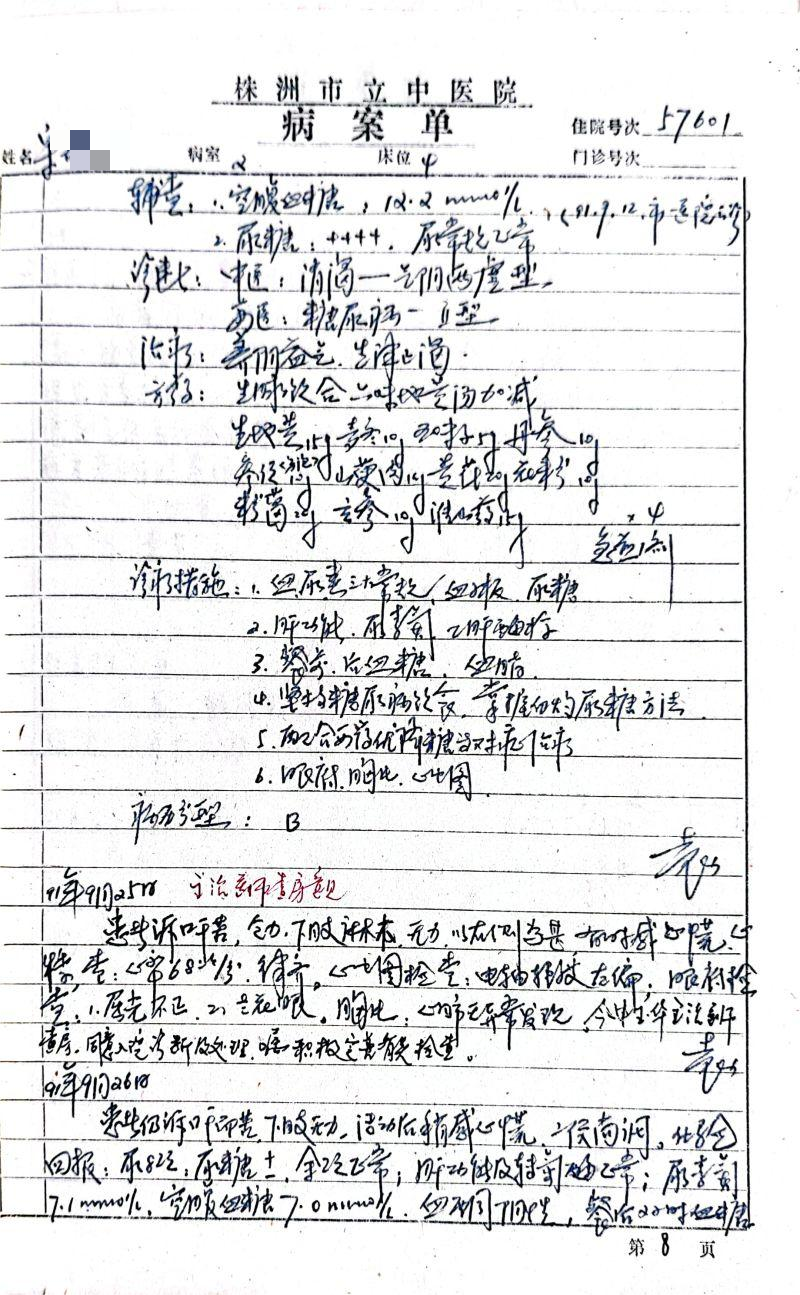 株洲市立中医院
病案单
住院号次 57601
姓名 病室 2 床位 4 门诊号次
辅查：1.空腹血糖：12.2 mmol/L.（91.9.12.市一医院
2.尿糖：++++. 尿常规正常
诊断：中医：消渴—气阴两虚型
西医：糖尿病—Ⅱ型
治疗：养阴益气.生津止渴.
方药： 合六味地黄汤加减
生地黄15g 麦冬10g 五味子5g 丹参10g
10g 山萸肉10g 黄芪20g 花粉10g
20g 玄参10g 淮山药15g
×4
每日1剂
诊疗措施：1.血尿大三大常规 尿糖
2.肝功能.尿素氮 乙肝
3.餐前.后血糖.血脂.
4.坚持糖尿病饮食.掌握 尿糖方法.
5.配合西药优降糖 对症治疗
6.眼底.胸片.心电图
病历分型：B
91年9月25日 主治医师查房意见
患者诉口干苦，乏力.下肢麻木.无力.以右侧为甚 有时感心慌.心
查：心率68次/分.律齐。心电图检查：电轴 左偏.眼底检
查：1.屈光不正 2.老花眼。胸片：心肺无异常发现。今 主治医师
查房.同意入院诊断及处理.嘱积极完善有关检查。
91年9月26日
患者仍诉口干而苦.下肢无力.活动后稍感心慌.二便尚调。化验
回报：尿8次：尿糖±.余 正常；肝功能及 正常；尿素氮
7.1mmol/L.空腹血糖7.0mmol/L. 阴性，餐后2小时血糖
第 8 页